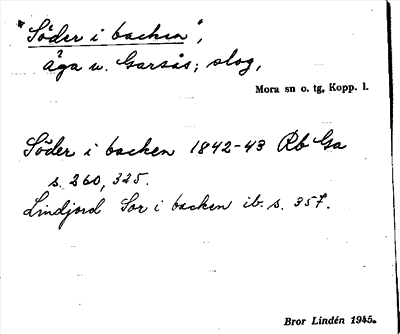 "Söder i backen",
äga u. Garsås; slog,
Mora sn o. tg, Kopp. l.
Söder i backen 1842-43 Rb Ga
s. 260, 325.
Lindjord Sor i backen ib. s. 357.
Bror Lindén 1945.